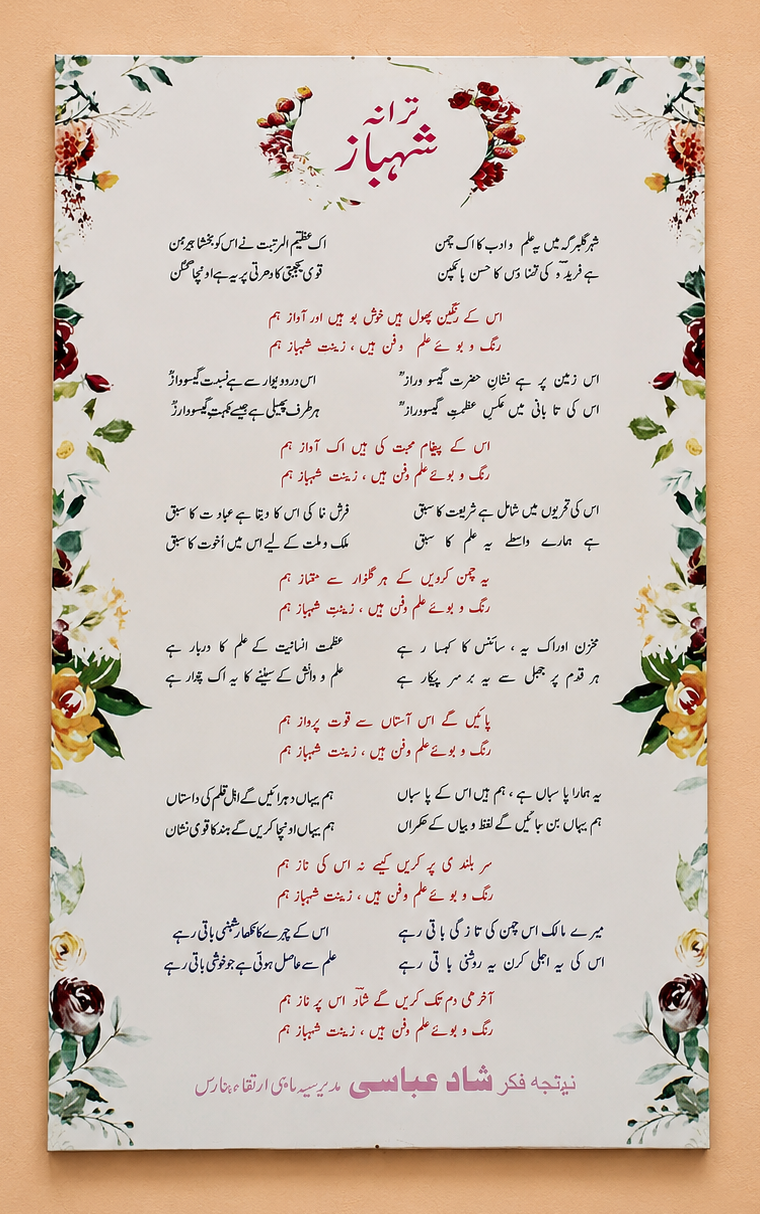 ترانہ
شہباز
شہر گلبرگہ میں یہ علم و ادب کا اک چمن اک عظیم المرتبت نے اس کو بخشا پیرہن
ہے فریدؔ و کی تمنا ؤں کا حسن بانکپن قومی یکجہتی کا دھرتی پر یہ ہے اونچا گگن
اس کے رنگین پھول ہیں خوش بو ہیں اور آواز ہم
رنگ و بوئے علم وفن ہیں ، زینت شہباز ہم
اس زمین پر ہے نشانِ حضرت گیسو وراز” اس درد و دیوار سے ہے نسبت گیسو دراز
اس کی تا بانی میں عکسِ عظمتِ گیسودراز” ہر طرف پھیلی ہے جیسے نکہتِ گیسو دارز
اس کے پیغام محبت کی ہیں اک آواز ہم
رنگ و بوئے علم وفن ہیں ، زینت شہباز ہم
اس کی تحریوں میں شامل ہے شریعت کا سبق فرش نما کی اس کا دیتا ہے عبادت کا سبق
ہے ہمارے واسطے یہ علم کا سبق ملک و ملت کے لیے اس میں اُخوت کا سبق
یہ چمن کرویں کے ہر گلوار سے ممتاز ہم
رنگ و بوئے علم وفن ہیں ، زینتِ شہباز ہم
مخزن اوراک یہ ، سائنس کا کہسا ر ہے عظمت انسانیت کے علم کا دربار ہے
ہر قدم پر جہل سے یہ بر سر پیکار ہے علم و دانش کے سفینے کا یہ اک پتوار ہے
پائیں گے اس آستاں سے قوت پرواز ہم
رنگ و بوئے علم وفن ہیں ، زینت شہباز ہم
یہ ہمارا پا سباں ہے ، ہم ہیں اس کے پا سباں ہم یہاں دہرائیں گے اہل قلم کی داستاں
ہم یہاں بن جائیں گے لفظ و بیاں کے حکمراں ہم یہاں اونچا کریں گے ہند کا قومی نشان
سر بلند ی پر کریں کیسے نہ اس کی ناز ہم
رنگ و بوئے علم وفن ہیں ، زینت شہباز ہم
میرے مالک اس چمن کی تا ز گی با تی رہے اس کے چہرے کا نکھار شبنمی باقی رہے
اس کی یہ اجلی کرن یہ روشنی با تی رہے علم سے حاصل ہوئی ہے جو خوشی باقی رہے
آخر می دم تک کریں گے شادؔ اس پر ناز ہم
رنگ و بوئے علم وفن ہیں ، زینت شہباز ہم
نیتجہ فکر شاد عباسی مدیر سہ ماہی ارتقاء بنارس